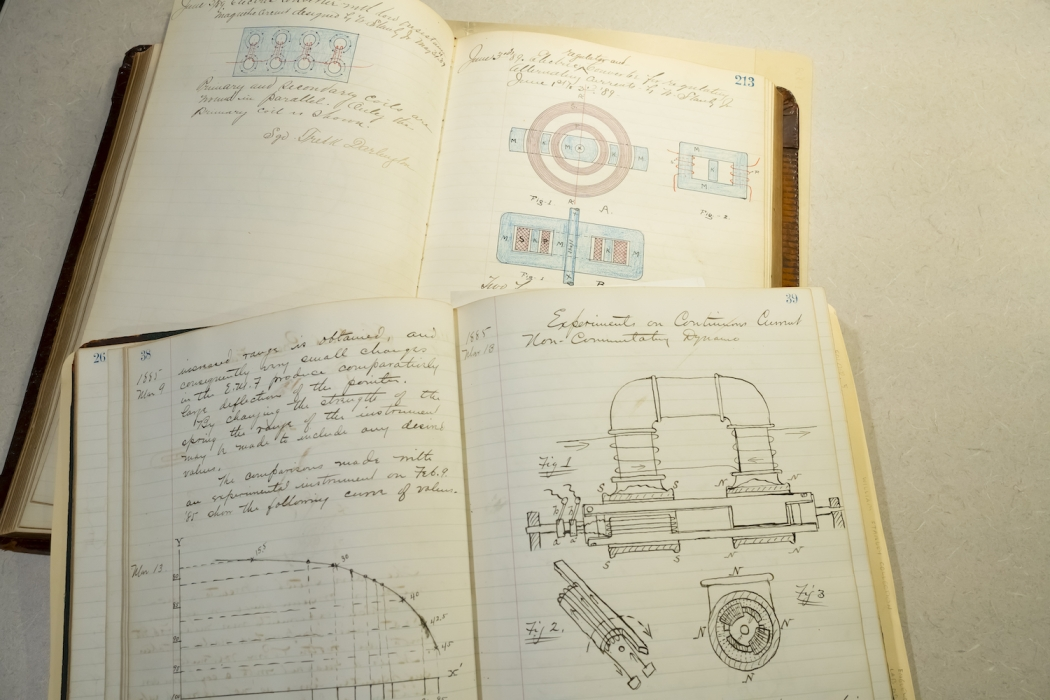 Magnetic Circuit designed by W. Stanley Jr. May
Primary and Secondary coils are
wound in parallel. Only the
Primary coil is shown.
Sgd Fred Darlington
213
regulation and
June 3rd '89. Electric Converter for regulating
Alternating Currents by W. Stanley Jr
June 1st '89
M
M
Fig. 1
A.
M
M
Fig. 2
S
P
M
M
Fig. 1
B
Two
26
38
1885
Mar 9.
increased range is obtained, and
consequently very small changes
in the E.M.F. produce comparatively
large deflections of the pointer.
By changing the strength of the
spring the range of the instrument
may be made to include any desired
values.
The comparisons made with
an experimental instrument on Feb. 9.
'85. show the following curve of values.
Mar. 13.
Y
X'
45
39
1885
Mar 18.
Experiments on Continuous Current
Non-Commutating Dynamo
Fig 1
S
S
N
N
a
a'
S
S
N
N
Fig 2.
N
N
N
Fig 3